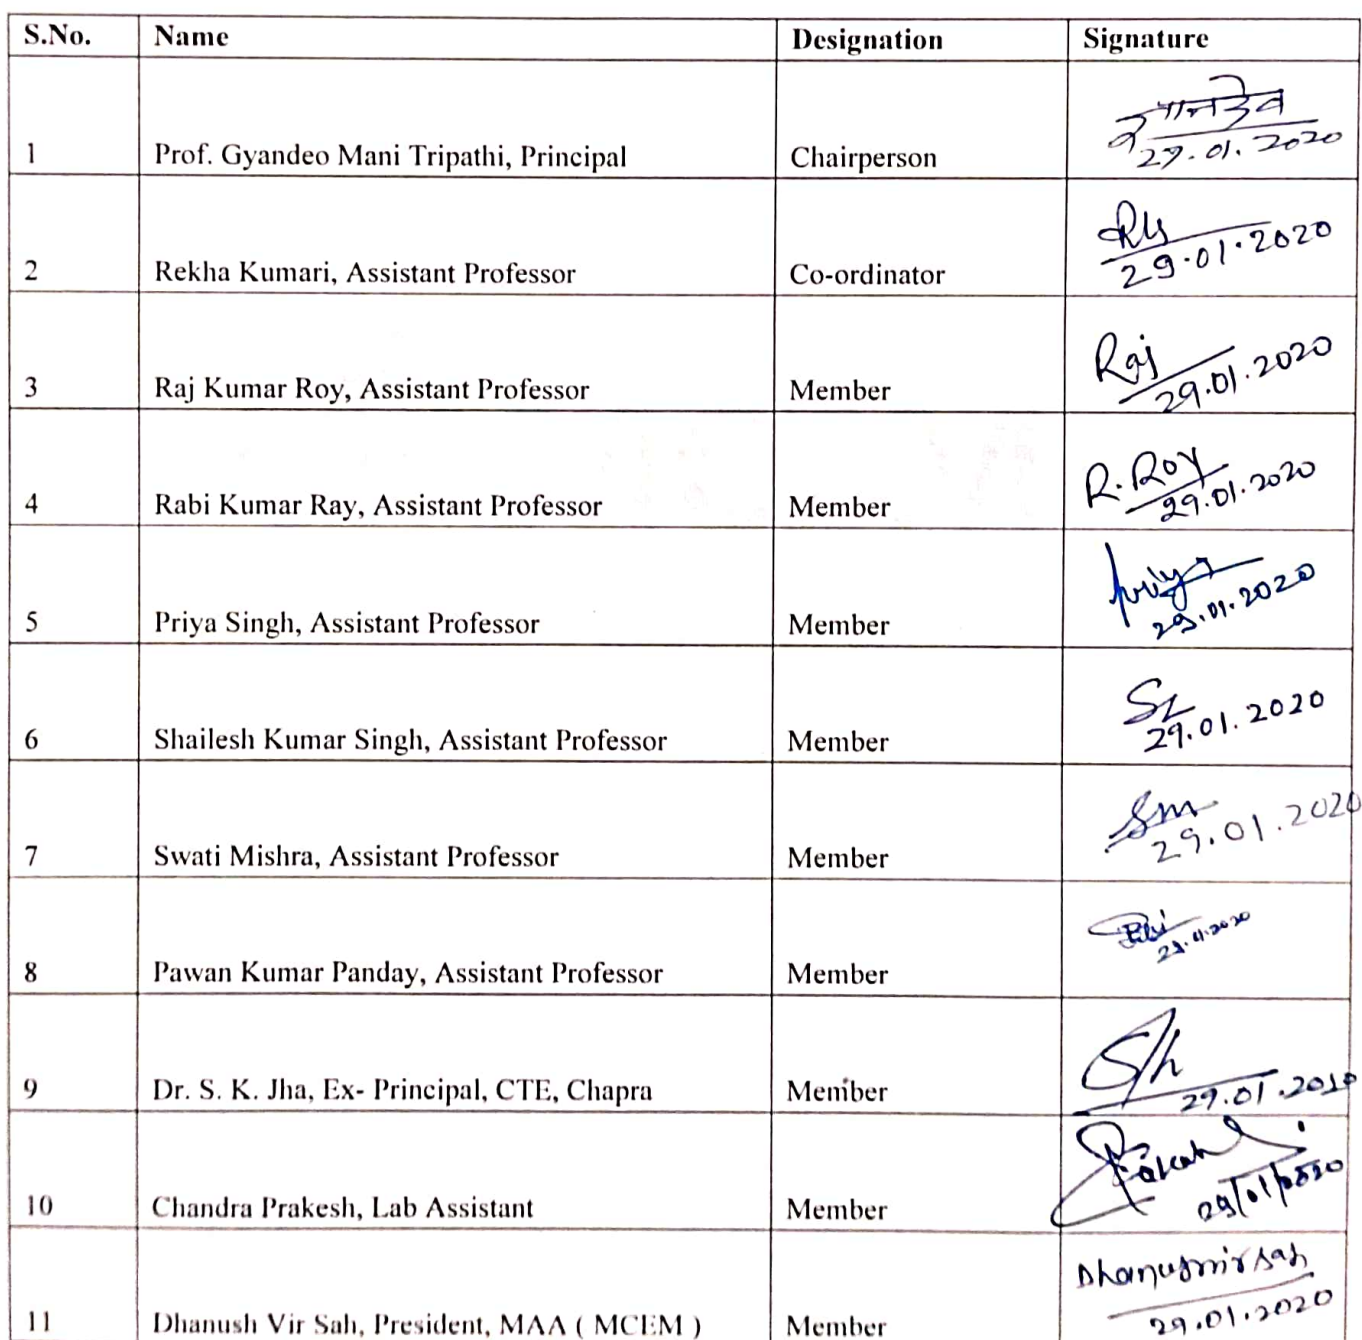 S.No. Name Designation Signature
ज्ञानदेव
1 Prof. Gyandeo Mani Tripathi, Principal Chairperson 29.01.2020
2 Rekha Kumari, Assistant Professor Co-ordinator 29.01.2020
Raj
3 Raj Kumar Roy, Assistant Professor Member 29.01.2020
R. Roy
4 Rabi Kumar Ray, Assistant Professor Member 29.01.2020
Priya
5 Priya Singh, Assistant Professor Member 29.01.2020
6 Shailesh Kumar Singh, Assistant Professor Member 29.01.2020
Sm
7 Swati Mishra, Assistant Professor Member 29.01.2020
8 Pawan Kumar Panday, Assistant Professor Member 29.01.2020
9 Dr. S. K. Jha, Ex- Principal, CTE, Chapra Member 29.01.2020
10 Chandra Prakesh, Lab Assistant Member 29/01/2020
Dhanushvir sah
11 Dhanush Vir Sah, President, MAA ( MCEM ) Member 29.01.2020